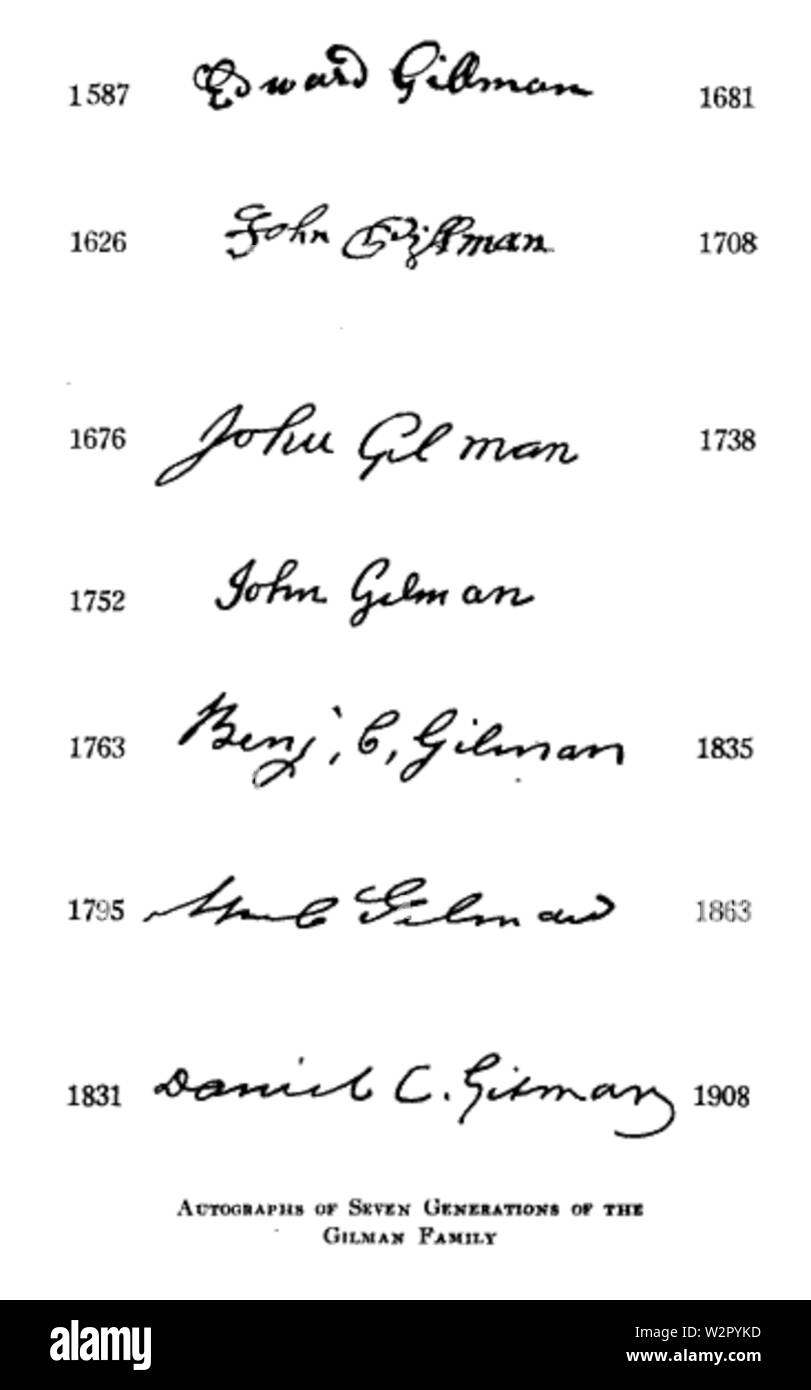 1587 Edward Gillman 1681
1626 John Gillman 1708
1676 John Gilman 1738
1752 John Gilman
1763 Benj, C, Gilman 1835
1795 Gilman 1863
1831 Daniel C. Gilman 1908
AUTOGRAPHS OF SEVEN GENERATIONS OF THE
GILMAN FAMILY
alamy
Image ID: W2PYKD
www.alamy.com